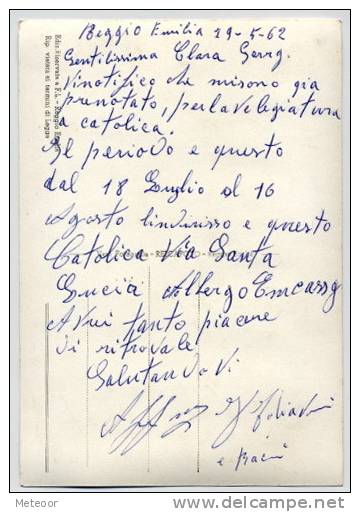 Reggio Emilia 29-5-62
Gentilissima Clara
Vinotifico che misono gia
prenotato, perla velegiatura
a catolica.
Il periodo e questo
dal 18 Luglio al 16
Agosto lindirisso e questo
Catolica Via Santa
Lucia Albergo
Avrei tanto piacere
di ritrovale
Salutandovi
e Baci
Ediz. Riservata a F.L. - Reggio Emilia
Rip. vietata ai termini di Legge
Meteoor
delcampe.net